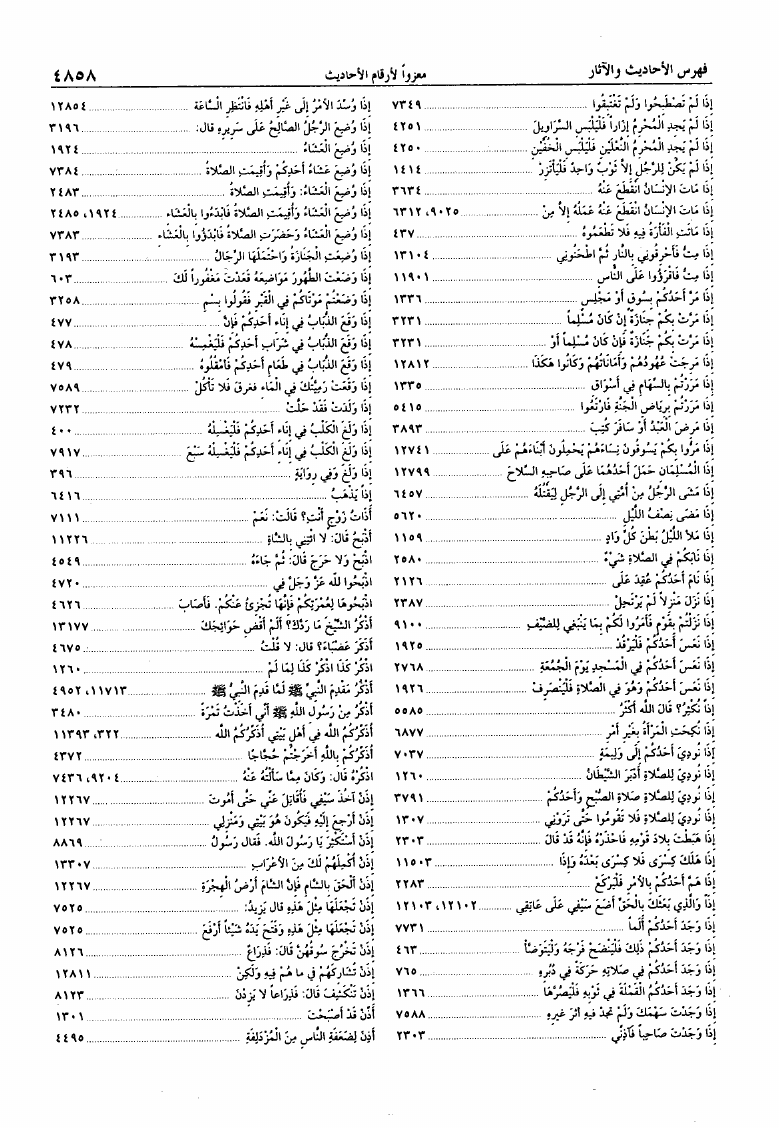 فهرس الأحاديث والآثار
معزواً لأرقام الأحاديث
٤٨٥٨
إِذَا لَمْ تَصْطَبِحُوا وَلَمْ تَغْتَبِقُوا ٧٣٤٩
إِذَا لَمْ يَجِدِ الْمُحْرِمُ إِزَاراً فَلْيَلْبَسِ السَّرَاوِيلَ ٤٢٥١
إِذَا لَمْ يَجِدِ الْمُحْرِمُ النَّعْلَيْنِ فَلْيَلْبَسِ الْخُفَّيْنِ ٤٢٥٠
إِذَا لَمْ يَكُنْ لِلرَّجُلِ إِلاَّ ثَوْبٌ وَاحِدٌ فَلْيَأْتَزِرْ ١٤١٤
إِذَا مَاتَ الإِنْسَانُ انْقَطَعَ عَنْهُ ٣٦٣٤
إِذَا مَاتَ الإِنْسَانُ انْقَطَعَ عَنْهُ عَمَلُهُ إِلاَّ مِنْ ٩٠٢٥، ٦٣١٢
إِذَا مَاتَتِ الْفَأْرَةُ فِيهِ فَلا تَطْعَمُوهُ ٤٣٧
إِذَا مِتُّ فَأَحْرِقُونِي بِالنَّارِ ثُمَّ اطْحَنُونِي ١٣١٠٤
إِذَا مِتُّ فَاقْرَؤُوا عَلَى النَّاسِ ١١٩٠١
إِذَا مَرَّ أَحَدُكُمْ بِسُوقٍ أَوْ مَجْلِسٍ ١٣٣٦
إِذَا مَرَّتْ بِكُمْ جَنَازَةٌ إِنْ كَانَ مُسْلِماً ٣٢٣١
إِذَا مَرَّتْ بِكُمْ جَنَازَةٌ فَإِنْ كَانَ مُسْلِماً أَوْ ٣٢٣١
إِذَا مَرِجَتْ عُهُودُهُمْ وَأَمَانَاتُهُمْ وَكَانُوا هَكَذَا ١٢٨١٢
إِذَا مَرَرْتُمْ بِالسِّهَامِ فِي أَسْوَاقِ ١٣٣٥
إِذَا مَرَرْتُمْ بِرِيَاضِ الْجَنَّةِ فَارْتَعُوا ٥٤١٥
إِذَا مَرِضَ الْعَبْدُ أَوْ سَافَرَ كُتِبَ ٣٨٩٣
إِذَا مَرُّوا بِكُمْ يَسُوقُونَ نِسَاءَهُمْ يَحْمِلُونَ أَبْنَاءَهُمْ عَلَى ١٢٧٤١
إِذَا الْمُسْلِمَانِ حَمَلَ أَحَدُهُمَا عَلَى صَاحِبِهِ السِّلاحَ ١٢٧٩٩
إِذَا مَشَى الرَّجُلُ مِنْ أُمَّتِي إِلَى الرَّجُلِ لِيَقْتُلَهُ ٦٤٥٧
إِذَا مَضَى نِصْفُ اللَّيْلِ ٥٦٢٠
إِذَا مَلأَ اللَّيْلُ بَطْنَ كُلِّ وَادٍ ١١٥٩
إِذَا نَابَكُمْ فِي الصَّلاةِ شَيْءٌ ٢٥٨٠
إِذَا نَامَ أَحَدُكُمْ عُقِدَ عَلَى ٢١٢٦
إِذَا نَزَلَ مَنْزِلاً لَمْ يَرْتَحِلْ ٢٣٨٧
إِذَا نَزَلْتُمْ بِقَوْمٍ فَأَمَرُوا لَكُمْ بِمَا يَنْبَغِي لِلضَّيْفِ ٩١٠٠
إِذَا نَعَسَ أَحَدُكُمْ فَلْيَرْقُدْ ١٩٢٥
إِذَا نَعَسَ أَحَدُكُمْ فِي الْمَسْجِدِ يَوْمَ الْجُمُعَةِ ٢٧٦٨
إِذَا نَعَسَ أَحَدُكُمْ وَهُوَ فِي الصَّلاةِ فَلْيَنْصَرِفْ ١٩٢٦
إِذَا نُكْثِرُ؟ قَالَ اللَّهُ أَكْثَرُ ٥٥٨٥
إِذَا نُكِحَتِ الْمَرْأَةُ بِغَيْرِ أَمْرِ ٦٨٧٧
إِذَا نُودِيَ أَحَدُكُمْ إِلَى وَلِيمَةٍ ٧٠٣٧
إِذَا نُودِيَ لِلصَّلاةِ أَدْبَرَ الشَّيْطَانُ ١٢٦٠
إِذَا نُودِيَ لِلصَّلاةِ صَلاةِ الصُّبْحِ وَأَحَدُكُمْ ٣٧٩١
إِذَا نُودِيَ لِلصَّلاةِ فَلا تَقُومُوا حَتَّى تَرَوْنِي ١٣٠٧
إِذَا هَبَطْتَ بِلادَ قَوْمِهِ فَاحْذَرْهُ فَإِنَّهُ قَدْ قَالَ ٢٣٠٣
إِذَا هَلَكَ كِسْرَى فَلا كِسْرَى بَعْدَهُ وَإِذَا ١١٥٠٣
إِذَا هَمَّ أَحَدُكُمْ بِالأَمْرِ فَلْيَرْكَعْ ٢٢٨٣
إِذَا وَالَّذِي بَعَثَكَ بِالْحَقِّ أَضَعُ سَيْفِي عَلَى عَاتِقِي ١٢١٠٢، ١٢١٠٣
إِذَا وَجَدَ أَحَدُكُمْ أَلَماً ٧٧٣١
إِذَا وَجَدَ أَحَدُكُمْ ذَلِكَ فَلْيَنْضَحْ فَرْجَهُ وَلْيَتَوَضَّأْ ٤٦٣
إِذَا وَجَدَ أَحَدُكُمْ فِي صَلاتِهِ حَرَكَةً فِي دُبُرِهِ ٧٦٥
إِذَا وَجَدَ أَحَدُكُمُ الْقَمْلَةَ فِي ثَوْبِهِ فَلْيَصُرَّهَا ١٣٦٦
إِذَا وَجَدْتَ سَهْمَكَ وَلَمْ تَجِدْ فِيهِ أَثَرَ غَيْرِهِ ٧٥٨٨
إِذَا وَجَدْتَ صَاحِباً فَآذِنِّي ٢٣٠٣
إِذَا وُسِّدَ الأَمْرُ إِلَى غَيْرِ أَهْلِهِ فَانْتَظِرِ السَّاعَةَ ١٢٨٥٤
إِذَا وُضِعَ الرَّجُلُ الصَّالِحُ عَلَى سَرِيرِهِ قَالَ: ٣١٩٦
إِذَا وُضِعَ الْعَشَاءُ ١٩٢٤
إِذَا وُضِعَ عَشَاءُ أَحَدِكُمْ وَأُقِيمَتِ الصَّلاةُ ٧٣٨٤
إِذَا وُضِعَ الْعَشَاءُ: وَأُقِيمَتِ الصَّلاةُ ٢٤٨٣
إِذَا وُضِعَ الْعَشَاءُ وَأُقِيمَتِ الصَّلاةُ فَابْدَءُوا بِالْعَشَاءِ ١٩٢٤، ٢٤٨٥
إِذَا وُضِعَ الْعَشَاءُ وَحَضَرَتِ الصَّلاةُ فَابْدَؤُوا بِالْعَشَاءِ ٧٣٨٣
إِذَا وُضِعَتِ الْجَنَازَةُ وَاحْتَمَلَهَا الرِّجَالُ ٣١٩٣
إِذَا وَضَعْتَ الطَّهُورَ مَوَاضِيعَهُ قَعَدْتَ مَغْفُوراً لَكَ ٦٠٣
إِذَا وَضَعْتُمْ مَوْتَاكُمْ فِي الْقَبْرِ فَقُولُوا بِسْمِ ٣٢٥٨
إِذَا وَقَعَ الذُّبَابُ فِي إِنَاءِ أَحَدِكُمْ فَإِنَّ ٤٧٧
إِذَا وَقَعَ الذُّبَابُ فِي شَرَابِ أَحَدِكُمْ فَلْيَغْمِسْهُ ٤٧٨
إِذَا وَقَعَ الذُّبَابُ فِي طَعَامِ أَحَدِكُمْ فَامْقُلُوهُ ٤٧٩
إِذَا وَقَعَتْ رَمِيَّتُكَ فِي الْمَاءِ فَغَرِقَ فَلا تَأْكُلْ ٧٥٨٩
إِذَا وَلَدَتْ فَقَدْ حَلَّتْ ٧٢٣٢
إِذَا وَلَغَ الْكَلْبُ فِي إِنَاءِ أَحَدِكُمْ فَلْيَغْسِلْهُ ٤٠٠
إِذَا وَلَغَ الْكَلْبُ فِي إِنَاءِ أَحَدِكُمْ فَلْيَغْسِلْهُ سَبْعَ ٧٩١٧
إِذَا وَلَغَ وَفِي رِوَايَةٍ ٣٩٦
إِذاً يَذْهَبُ ٦٤١٦
أَذَاتُ زَوْجٍ أَنْتِ؟ قَالَتْ: نَعَمْ ٧١١١
أَذْبَحُ قَالَ: لا ائْتِنِي بِالشَّاةِ ١١٢٢٦
اذْبَحْ وَلا حَرَجَ قَالَ: ثُمَّ جَاءَهُ ٤٥٤٩
اذْبَحُوا لِلَّهِ عَزَّ وَجَلَّ فِي ٤٧٢٠
اذْبَحُوهَا لِعُمْرَتِكُمْ فَإِنَّهَا تُجْزِئُ عَنْكُمْ. فَأَصَابَ ٤٦٢٦
أَذْكُرُ الشَّيْخَ مَا رَدَّكَ؟ أَلَمْ أَقْضِ حَوَائِجَكَ ١٣١٧٧
أَذَكَرَ عَصْبَاءَ؟ قَالَ: لا قُلْتُ ٤٦٧٥
اذْكُرْ كَذَا اذْكُرْ كَذَا لِمَا لَمْ ١٢٦٠
أَذْكُرُ مَقْدَمَ النَّبِيِّ ﷺ لَمَّا قَدِمَ النَّبِيُّ ﷺ ١١٧١٣، ٤٩٥٢
أَذْكُرُ مِنْ رَسُولِ اللَّهِ ﷺ أَنِّي أَخَذْتُ تَمْرَةً ٣٤٨٠
أُذَكِّرُكُمُ اللَّهَ فِي أَهْلِ بَيْتِي أُذَكِّرُكُمُ اللَّهَ ٣٢٢، ١١٣٩٣
أُذَكِّرُكُمْ بِاللَّهِ أَخَرَجْتُمْ حُجَّاجًا ٤٣٧٢
اذْكُرْهُ قَالَ: وَكَانَ مِمَّا سَأَلْتُهُ عَنْهُ ٩٢٠٤، ٧٤٣٦
إِذَنْ آخُذَ سَيْفِي فَأُقَاتِلَ عَنِّي حَتَّى أَمُوتَ ١٢٢٦٧
إِذَنْ أَرْجِعَ إِلَيْهِ فَيَكُونَ هُوَ بَيْتِي وَمَنْزِلِي ١٢٢٦٧
إِذَنْ أَسْتَكْثِرَ يَا رَسُولَ اللَّهِ. فَقَالَ رَسُولُ ٨٨٦٩
إِذَنْ أُكْمِلَهُمْ لَكَ مِنَ الأَعْرَابِ ١٣٣٠٧
إِذَنْ أَلْحَقَ بِالشَّامِ فَإِنَّ الشَّامَ أَرْضُ الْهِجْرَةِ ١٢٢٦٧
إِذَنْ تَجْعَلَهَا مِثْلَ هَذِهِ قَالَ يَزِيدُ: ٧٥٢٥
إِذَنْ تَجْعَلَهَا مِثْلَ هَذِهِ وَفَتَحَ يَدَهُ شَيْئاً أَرْفَعَ ٧٥٢٥
إِذَنْ تَخْرُجَ سُوقُهُنَّ قَالَ: فَذِرَاعٌ ٨١٢٦
إِذَنْ تُشَارِكُهُمْ فِي مَا هُمْ فِيهِ وَلَكِنْ ١٢٨١١
إِذَنْ تَنْكَشِفَ قَالَ: فَذِرَاعاً لا يَزِدْنَ ٨١٢٣
أَذِّنْ قَدْ أَصْبَحْتَ ١٣٠١
أَذِنَ لِضَعَفَةِ النَّاسِ مِنَ الْمُزْدَلِفَةِ ٤٤٩٥